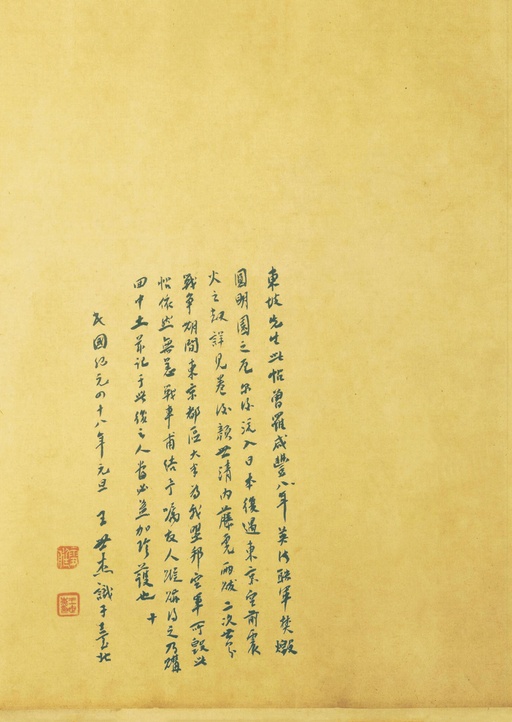 東坡先生此帖曾罹咸豐八年英法聯軍焚燬
圓明園之厄尔後流入日本復遇東京空前震
火之劫詳見卷後顏世清內藤虎兩跋二次世界
戰爭期間東京都區大半為我盟邦空軍所毀此
帖依然無恙戰事甫結予囑友人踪跡得之乃購
回中土並記于此後之人當必益加珍護也
民國紀元四十八年元旦 王世杰識于臺北